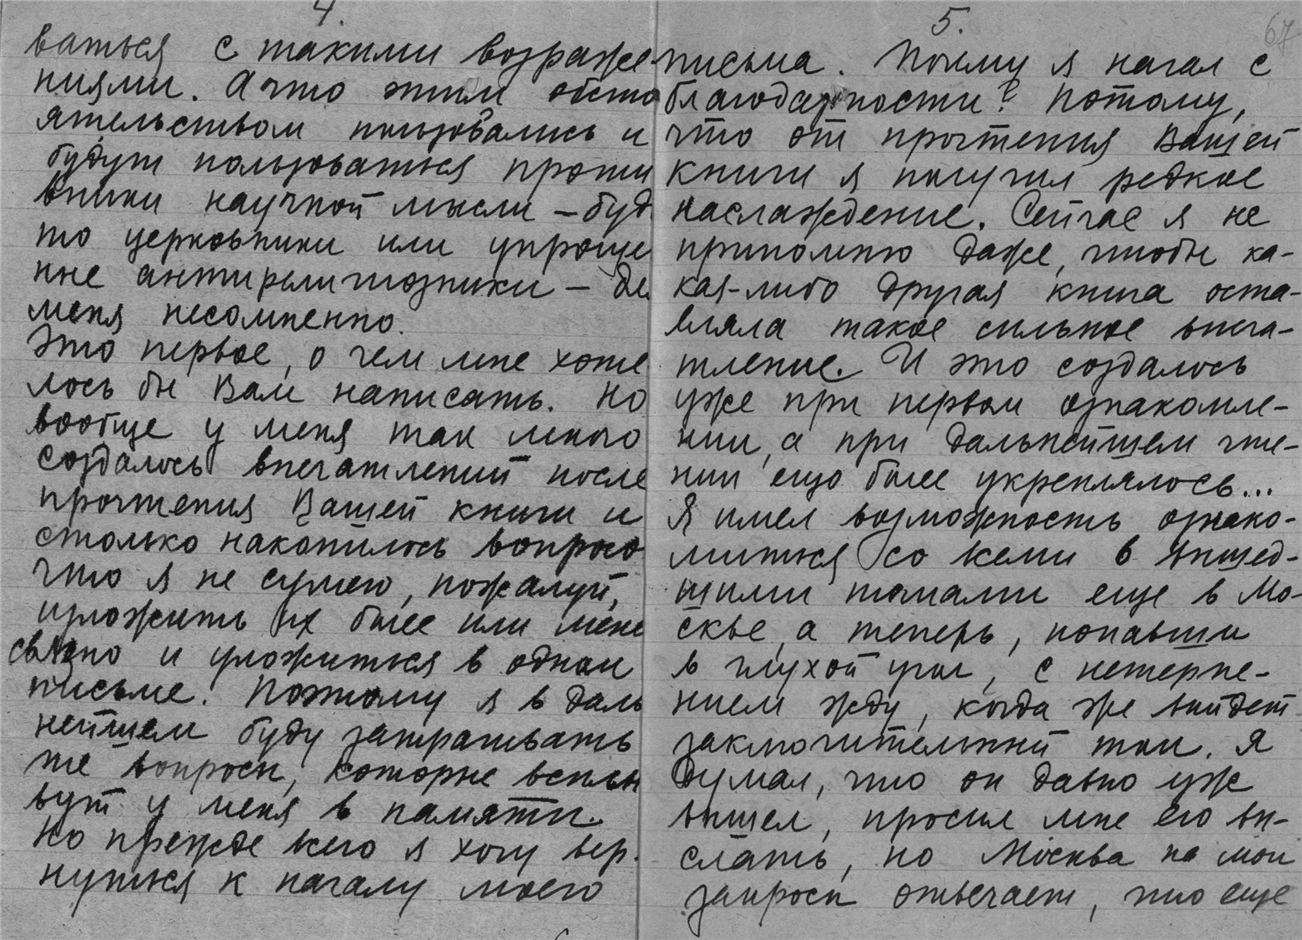 4.
ваться с такими возраже
ниями. А что этим обсто
ятельством пользовались и
будут пользоваться проти
вники научной мысли – буд
то церковники или упроще
нне антирелигиозники – дл
меня несомненно.
Это первое, о чем мне хоте
лось бы Вам написать. Но
вообще у меня так много
создалось впечатлений после
прочтения Вашей книги и
столько накопилось вопросо
что я не сумею, пожалуй,
изложить их более или мене
связно и уложиться в одном
письме. Поэтому я в даль
нейшем буду затрагивать
те вопросы, которые всплы
вут у меня в памяти.
Но прежде всего я хочу вер-
нуться к началу моего
5.
67
письма. Почему я начал с
благодарности? Потому,
что от прочтения Вашей
книги я получил редкое
наслаждение. Сейчас я не
припомню даже, чтобы ка-
кая-либо другая книга оста-
вляла такое сильное впеча-
тление. И это создалось
уже при первом ознакомле-
нии, а при дальнейшем чте-
нии ещо более укреплялось...
Я имел возможность ознако-
миться со всеми вышед-
шими томами еще в Мо-
скве, а теперь, попавши
в глухой угол, с нетерпе-
нием жду, когда же выйдет
заключительный том. Я
думал, что он давно уже
вышел, просил мне его вы-
слать, но Москва на мои
запросы отвечает, что еще